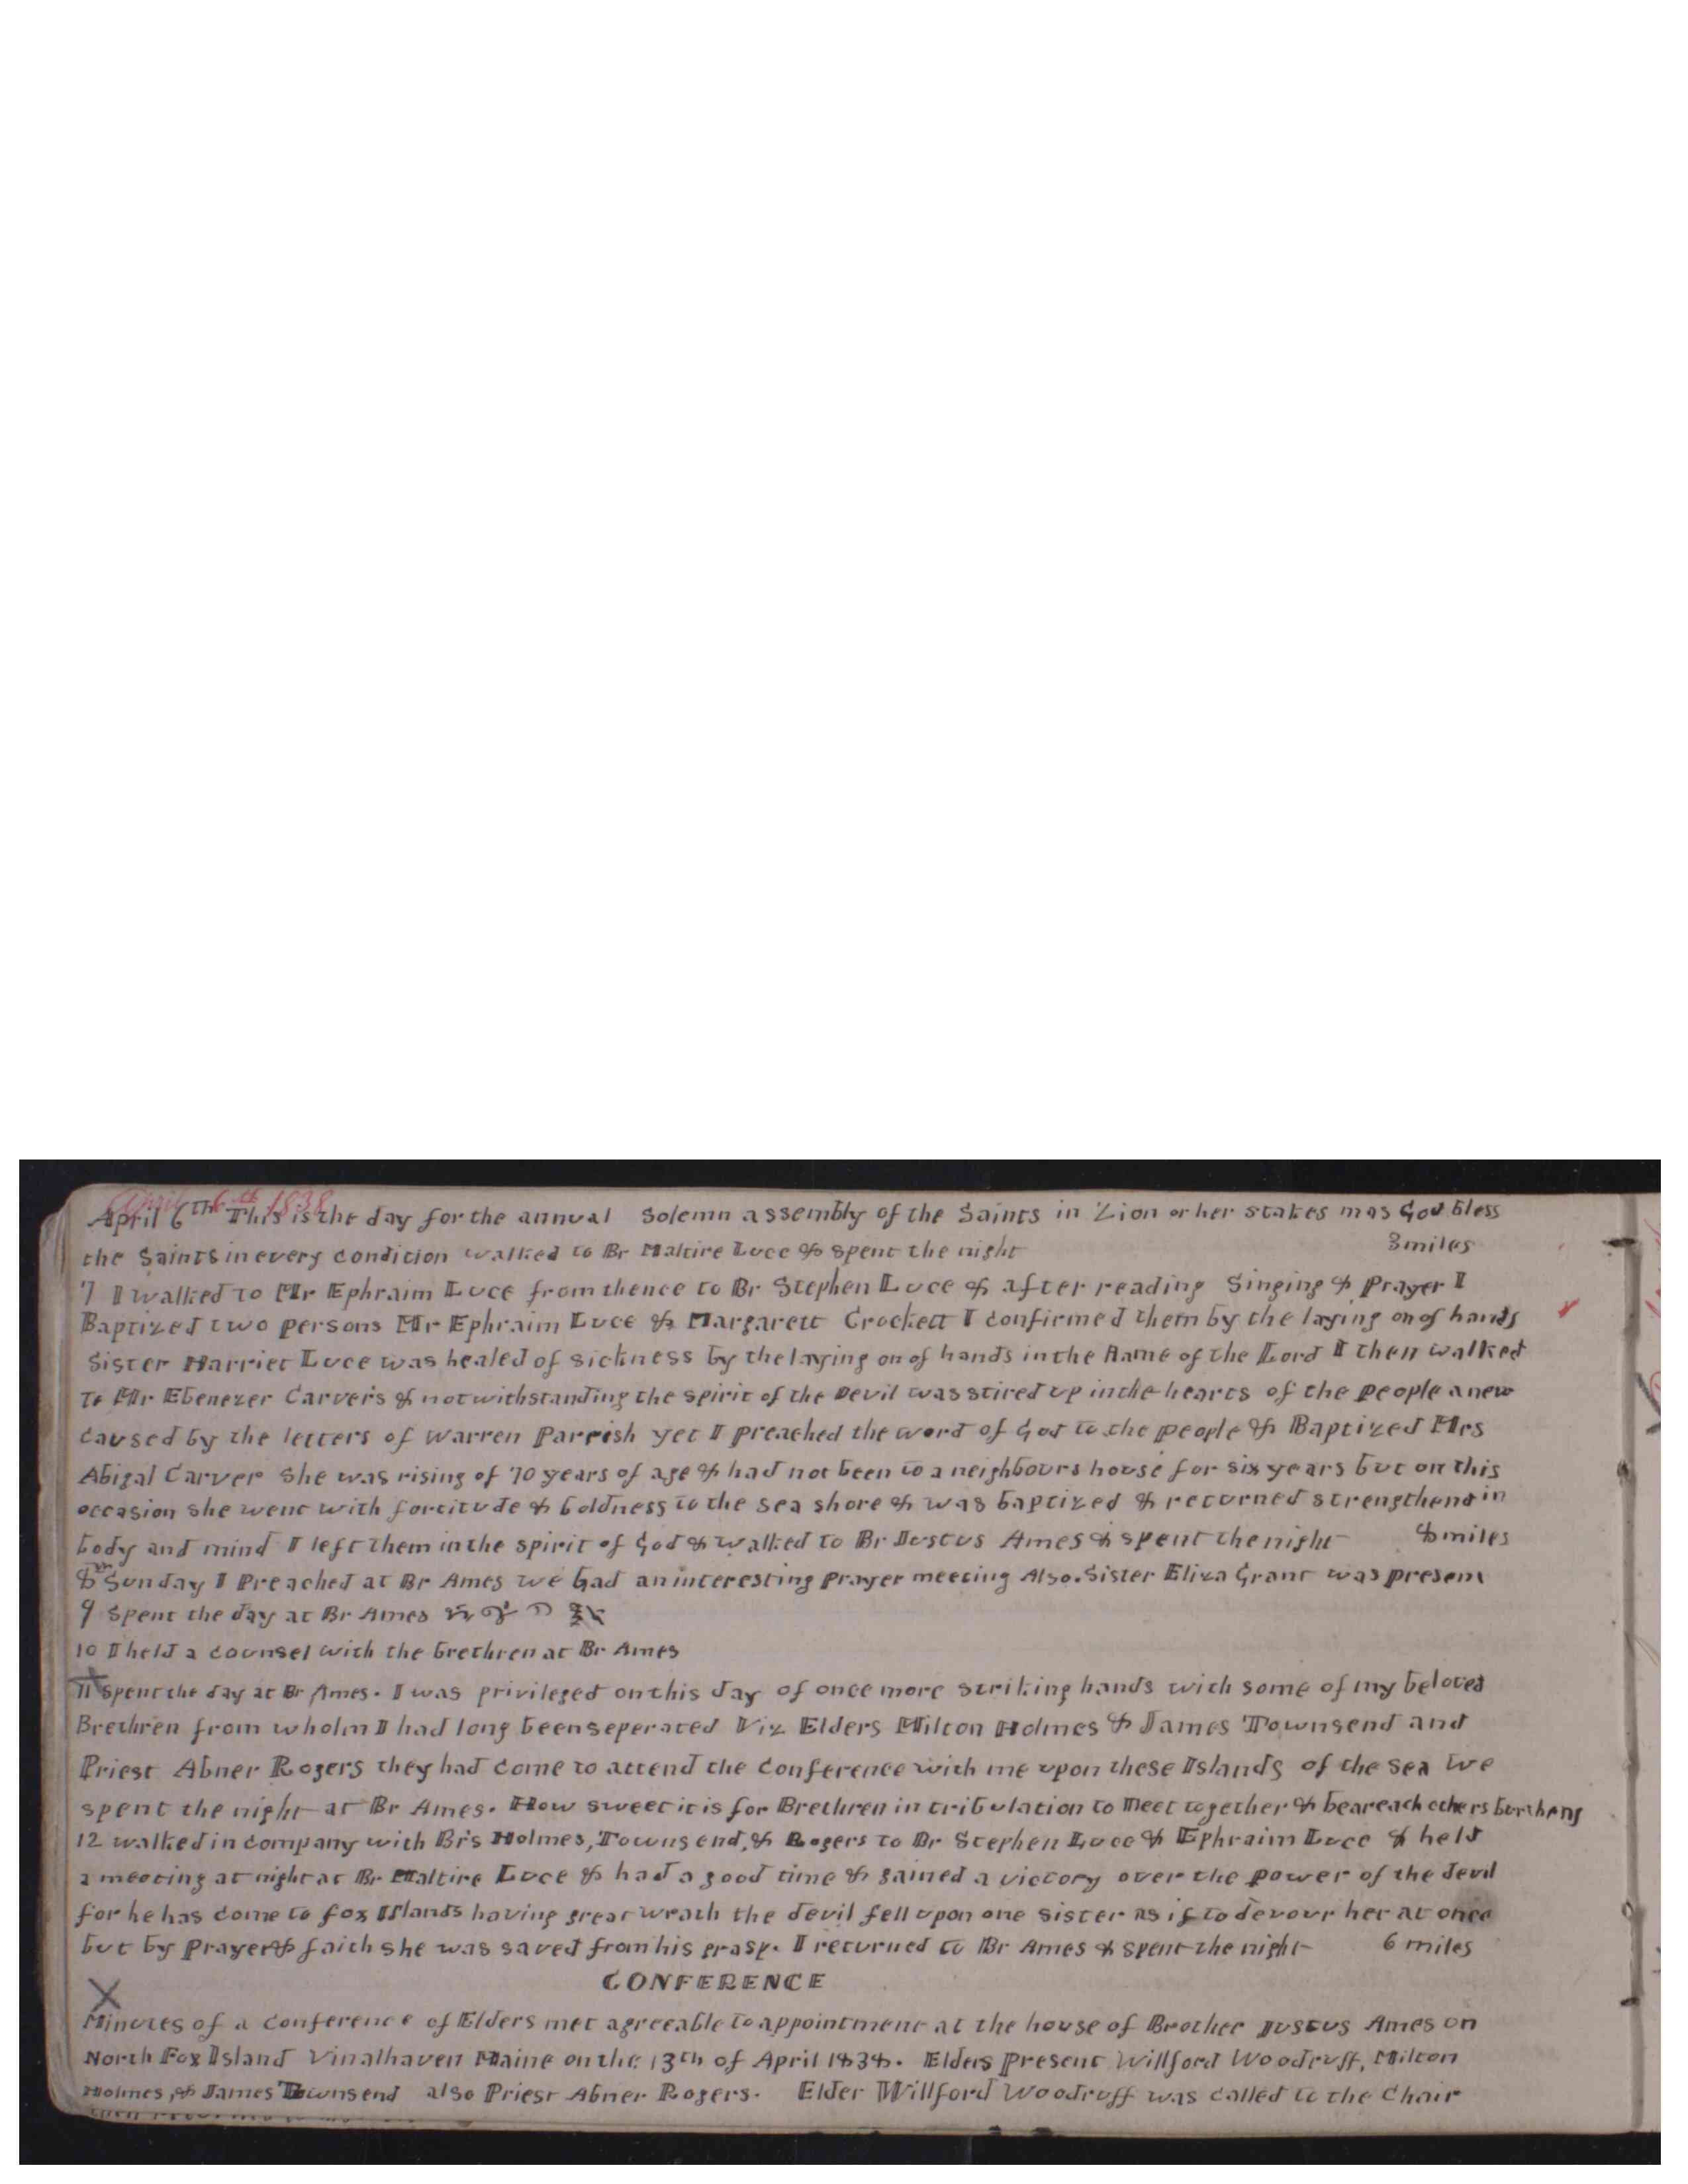 April 6th 1838
April 6th This is the day for the annual Solemn assembly of the Saints in Zion or her stakes mas God bless
the Saints in every condition walked to Br Maltire Luce & spent the night 3 miles
7 I walked to Mr Ephraim Luce from thence to Br Stephen Luce & after reading Singing & Prayer I
Baptized two persons Mr Ephraim Luce & Margarett Crockett I confirmed them by the laying on of hands
Sister Harriet Luce was healed of sickness by the laying on of hands in the Name of the Lord I then walked
To Mr Ebenezer Carver's & notwithstanding the spirit of the Devil was stired up in the hearts of the people anew
caused by the letters of Warren Parrish yet I preached the word of God to the people & Baptized Mrs
Abigal Carver She was rising of 70 years of age & had not been to a neighbours house for six years but on this
occasion she went with fortitude & boldness to the sea shore & was baptized & returned strengthend in
body and mind I left them in the spirit of God & walked to Br Justus Ames & spent the night 8 miles
8th Sunday I Preached at Br Ames we had an interesting prayer meeting Also. Sister Eliza Grant was present
9 Spent the day at Br Ames
10 I held a counsel with the brethren at Br Ames
11 Spent the day at Br Ames. I was privileged on this day of once more striking hands with some of my beloved
Brethren from wholm I had long been seperated Viz Elders Milton Holmes & James Townsend and
Priest Abner Rogers they had come to attend the Conference with me upon these Islands of the sea We
spent the night at Br Ames. How sweet it is for Brethren in tribulation to meet together & bear each others burthens
12 walked in company with Br's Holmes, Townsend, & Rogers to Br Stephen Luce & Ephraim Luce & held
a meeting at night at Br Maltire Luce & had a good time & gained a victory over the power of the devil
for he has come to fox Islands having great wrath the devil fell upon one sister as if to devour her at once
but by Prayer & faith she was saved from his grasp. I returned to Br Ames & spent the night 6 miles
CONFERENCE
Minutes of a conference of Elders met agreeable to appointment at the house of Brother Justus Ames on
North Fox Island Vinalhaven Maine on the 13th of April 1838. Elders Present Willford Woodruff, Milton
Holmes, & James Townsend also Priest Abner Rogers. Elder Willford Woodruff was called to the Chair